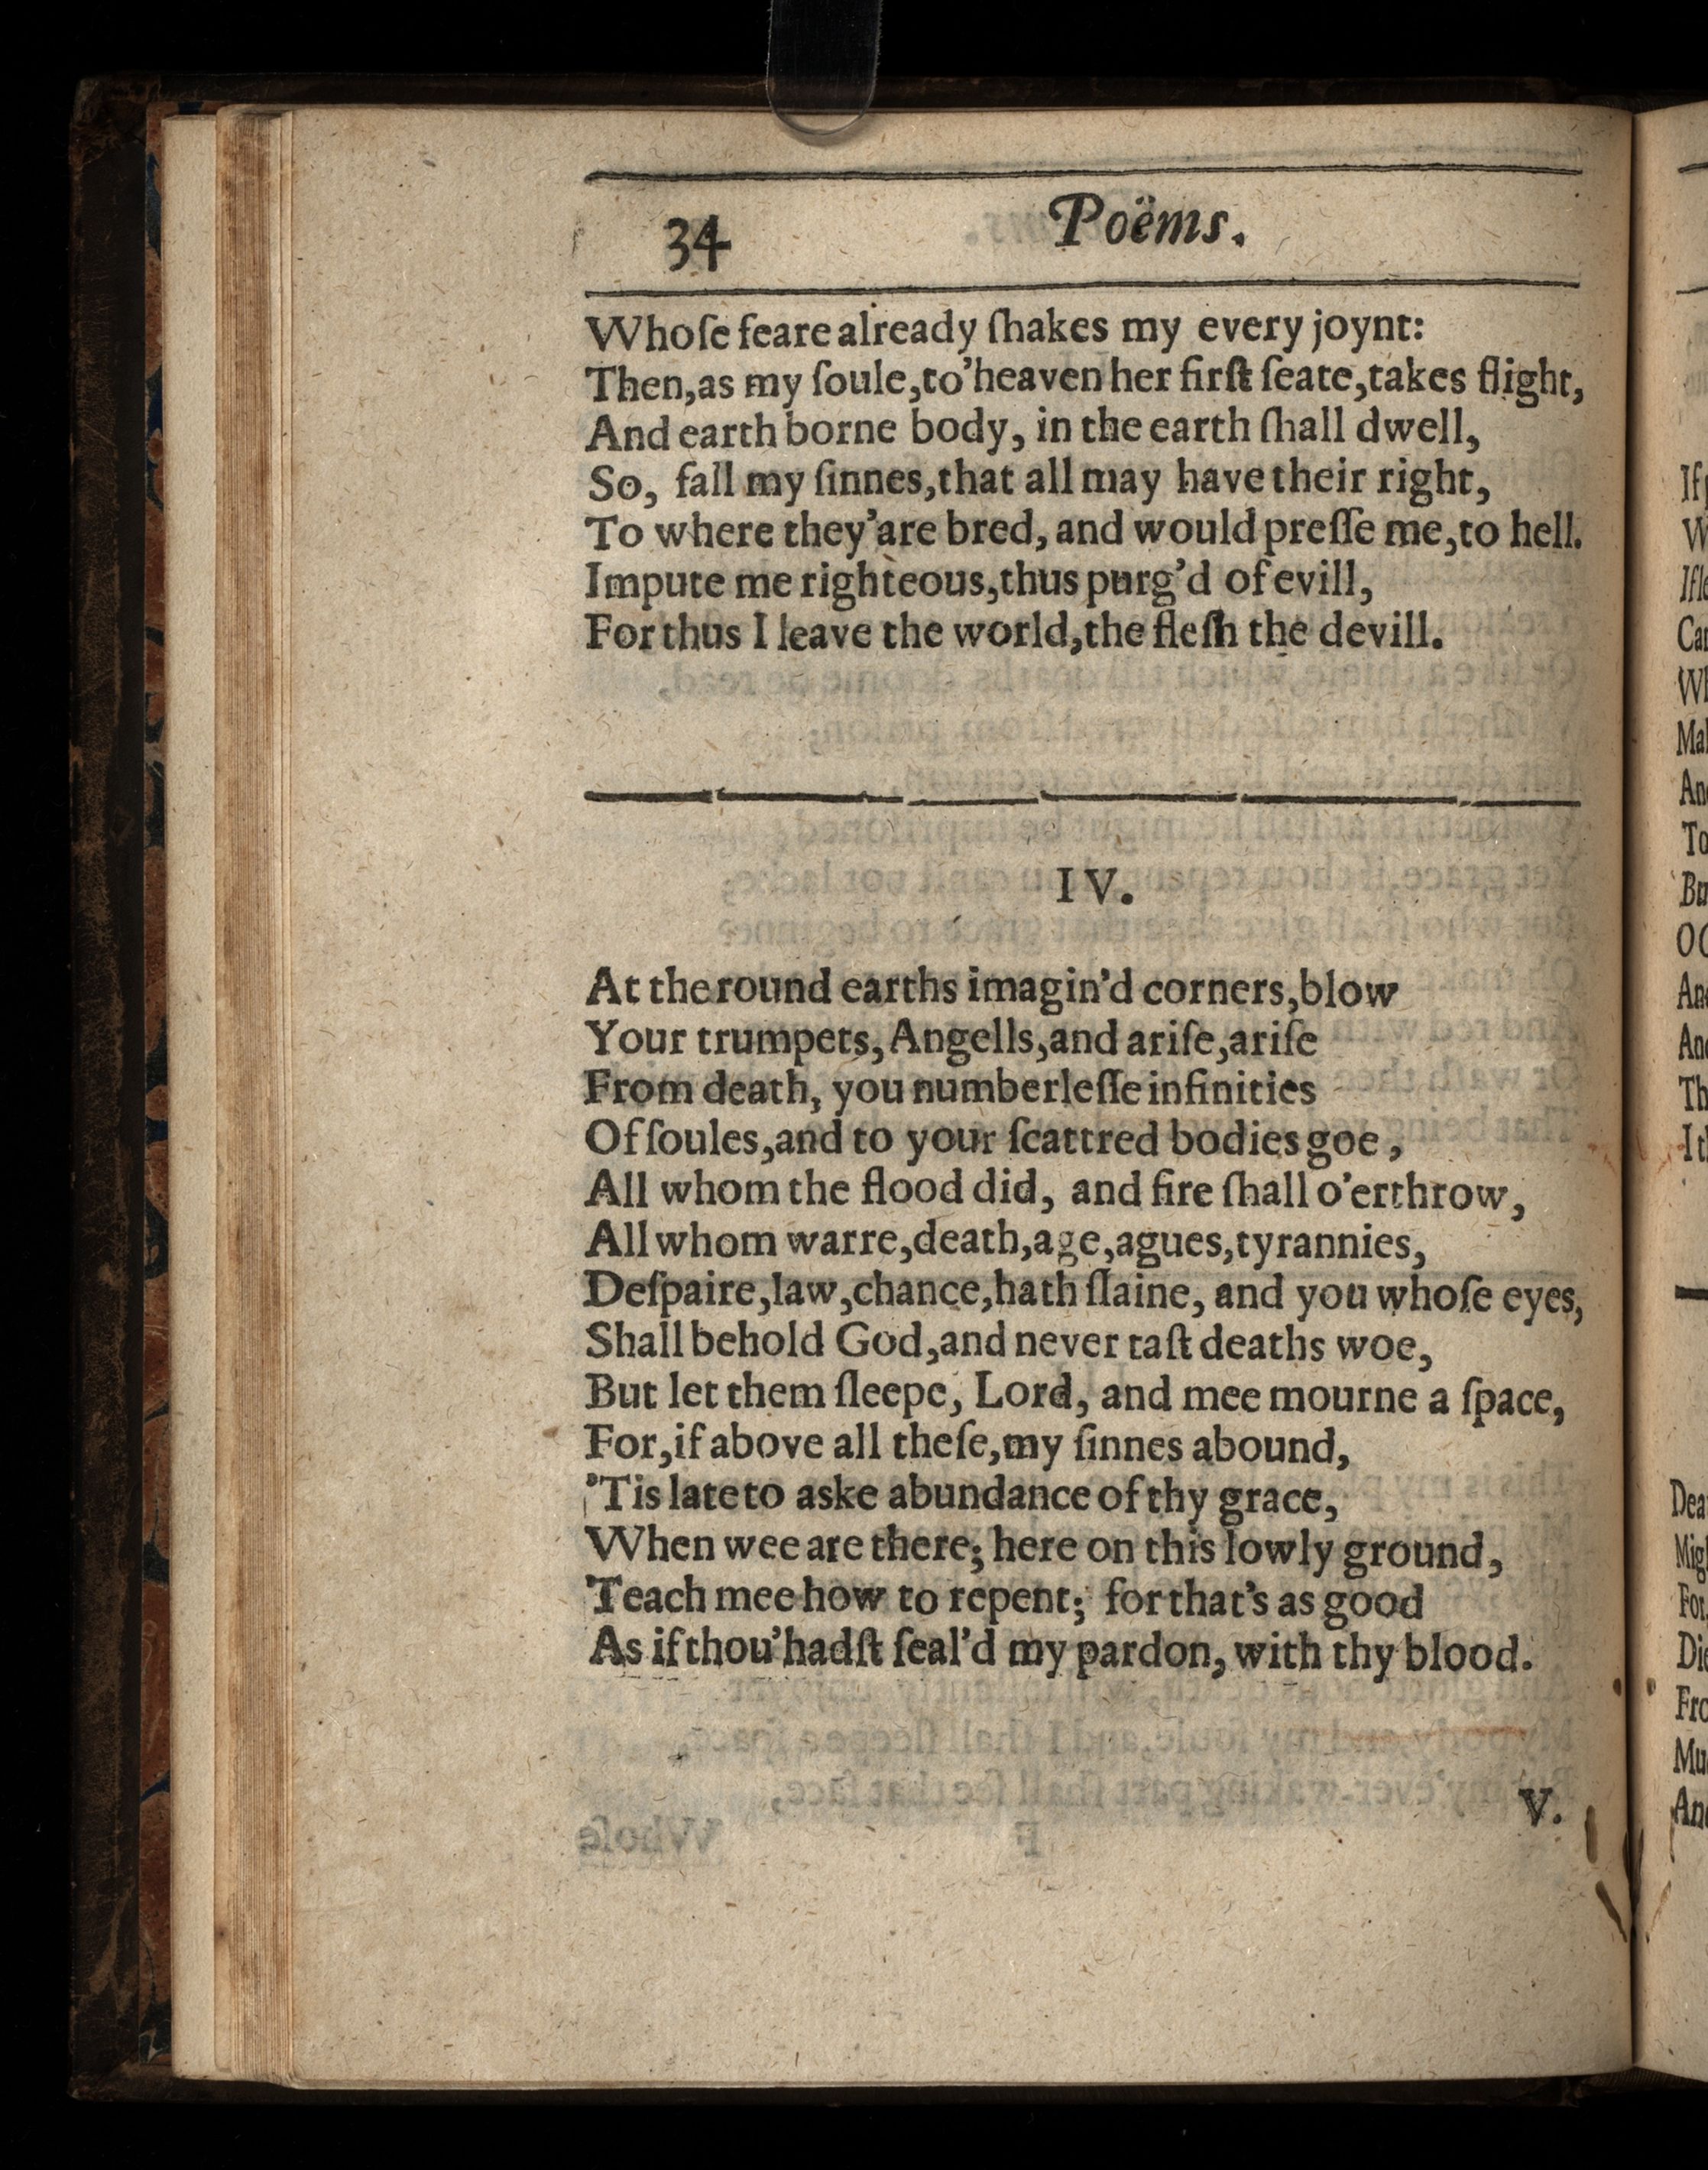 34 Poëms.
Whoſe feare already ſhakes my every joynt:
Then, as my ſoule, to'heaven her firſt ſeate, takes flight,
And earth borne body, in the earth ſhall dwell,
So, fall my ſinnes, that all may have their right,
To where they'are bred, and would preſſe me, to hell.
Impute me righteous, thus purg'd of evill,
For thus I leave the world, the fleſh the devill.
IV.
At the round earths imagin'd corners, blow
Your trumpets, Angells, and ariſe, ariſe
From death, you numberleſſe infinities
Of ſoules, and to your ſcattred bodies goe,
All whom the flood did, and fire ſhall o'erthrow,
All whom warre, death, age, agues, tyrannies,
Deſpaire, law, chance, hath ſlaine, and you whoſe eyes,
Shall behold God, and never taſt deaths woe,
But let them ſleepe, Lord, and mee mourne a ſpace,
For, if above all theſe, my ſinnes abound,
'Tis late to aske abundance of thy grace,
When wee are there; here on this lowly ground,
Teach mee how to repent; for that's as good
As if thou'hadſt ſeal'd my pardon, with thy blood.
V.